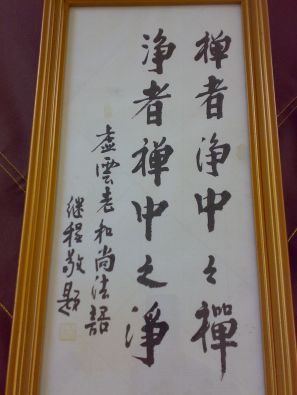 禅者淨中之禪
淨者禅中之淨
虛雲老和尚法語
继程敬题